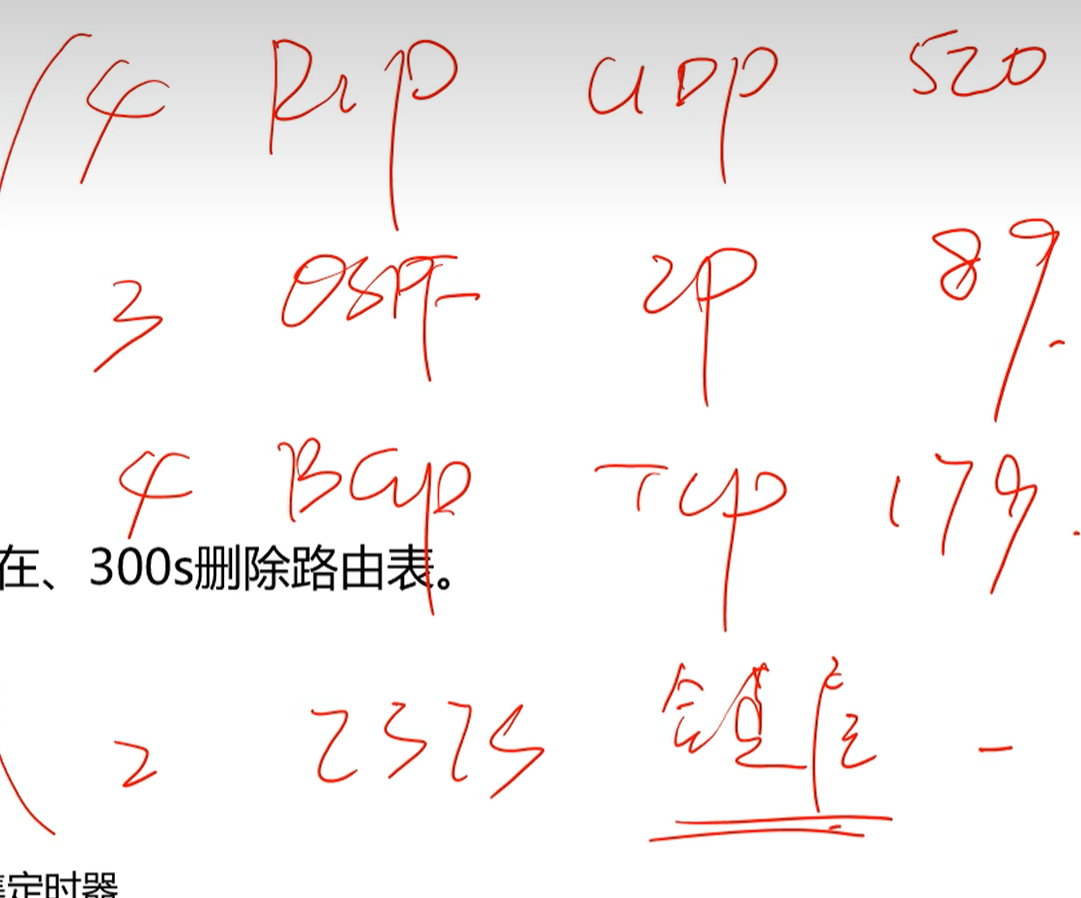 4 RIP UDP 520
3 OSPF IP 89.
4 BGP TCP 179.
在、300s删除路由表。
2 ISIS 链路 -
定时器